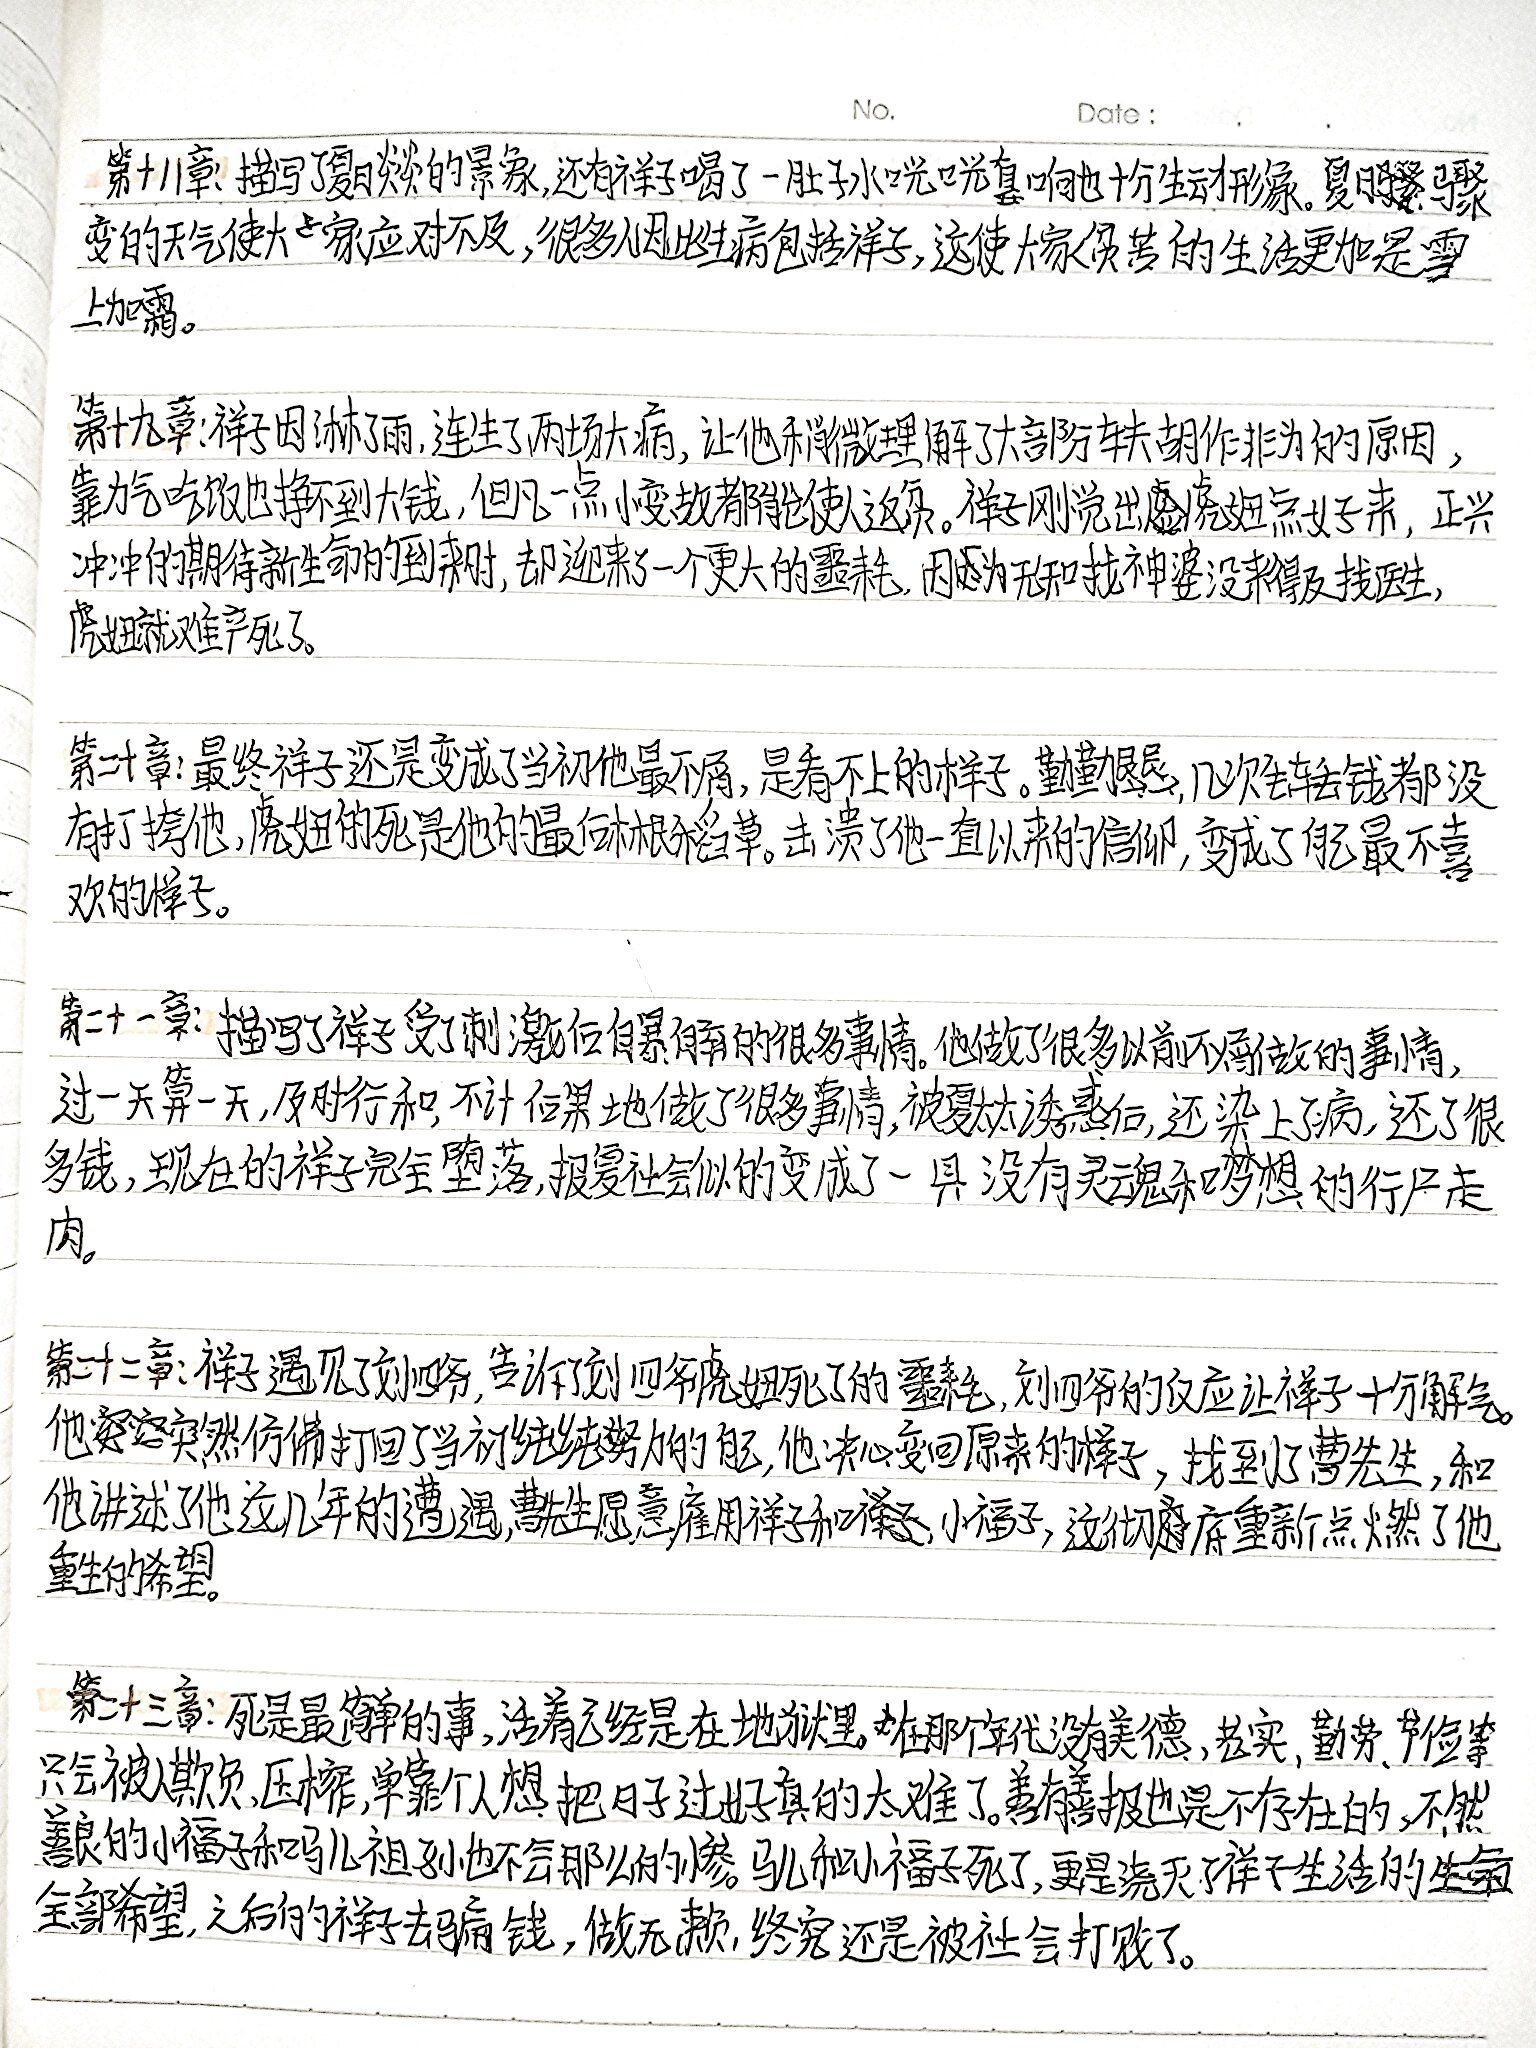 No. Date:
第十八章:描写了夏日炎炎的景象,还有祥子喝了一肚子水咣咣直响也十分生动形象。夏日骤
变的天气使大家应对不及,很多人因此生病包括祥子,这使大家贫苦的生活更加是雪
上加霜。
第十九章:祥子因淋了雨,连生了两场大病,让他稍微理解了大部分车夫胡作非为的原因,
靠力气吃饭也挣不到大钱,但凡一点小变故都能使人返贫。祥子刚觉出虎妞点好来,正兴
冲冲的期待新生命的到来时,却迎来了一个更大的噩耗,因为无知找神婆没来得及找医生,
虎妞就难产死了。
第二十章:最终祥子还是变成了当初他最不屑,是看不上的样子。勤勤恳恳,几次丢车丢钱都没
有打垮他,虎妞的死是他的最后一根稻草。击溃了他一直以来的信仰,变成了自己最不喜
欢的样子。
第二十一章:描写了祥子受了刺激后自暴自弃的很多事情。他做了很多以前不屑做的事情,
过一天算一天,及时行乐,不计后果地做了很多事情,被夏太太诱惑后,还染上了病,还了很
多钱,现在的祥子完全堕落,报复社会似的变成了一具没有灵魂和梦想的行尸走
肉。
第二十二章:祥子遇见了刘四爷,告诉了刘四爷虎妞死了的噩耗,刘四爷的反应让祥子十分解气。
他突然仿佛打回了当初纯纯努力的自己,他决心变回原来的样子,找到了曹先生,和
他讲述了他这几年的遭遇,曹先生愿意雇用祥子和小福子,这彻底重新点燃了他
重生的希望。
第二十三章:死是最简单的事,活着已经是在地狱里。在那个年代没有美德,老实,勤劳、节俭等
只会被人欺负,压榨,单靠个人想把日子过好真的太难了。善有善报也是不存在的,不然
善良的小福子和马儿祖孙也不会那么的惨。马儿和小福子死了,更是浇灭了祥子生活的
全部希望,之后的祥子去骗钱,做无赖,终究还是被社会打败了。